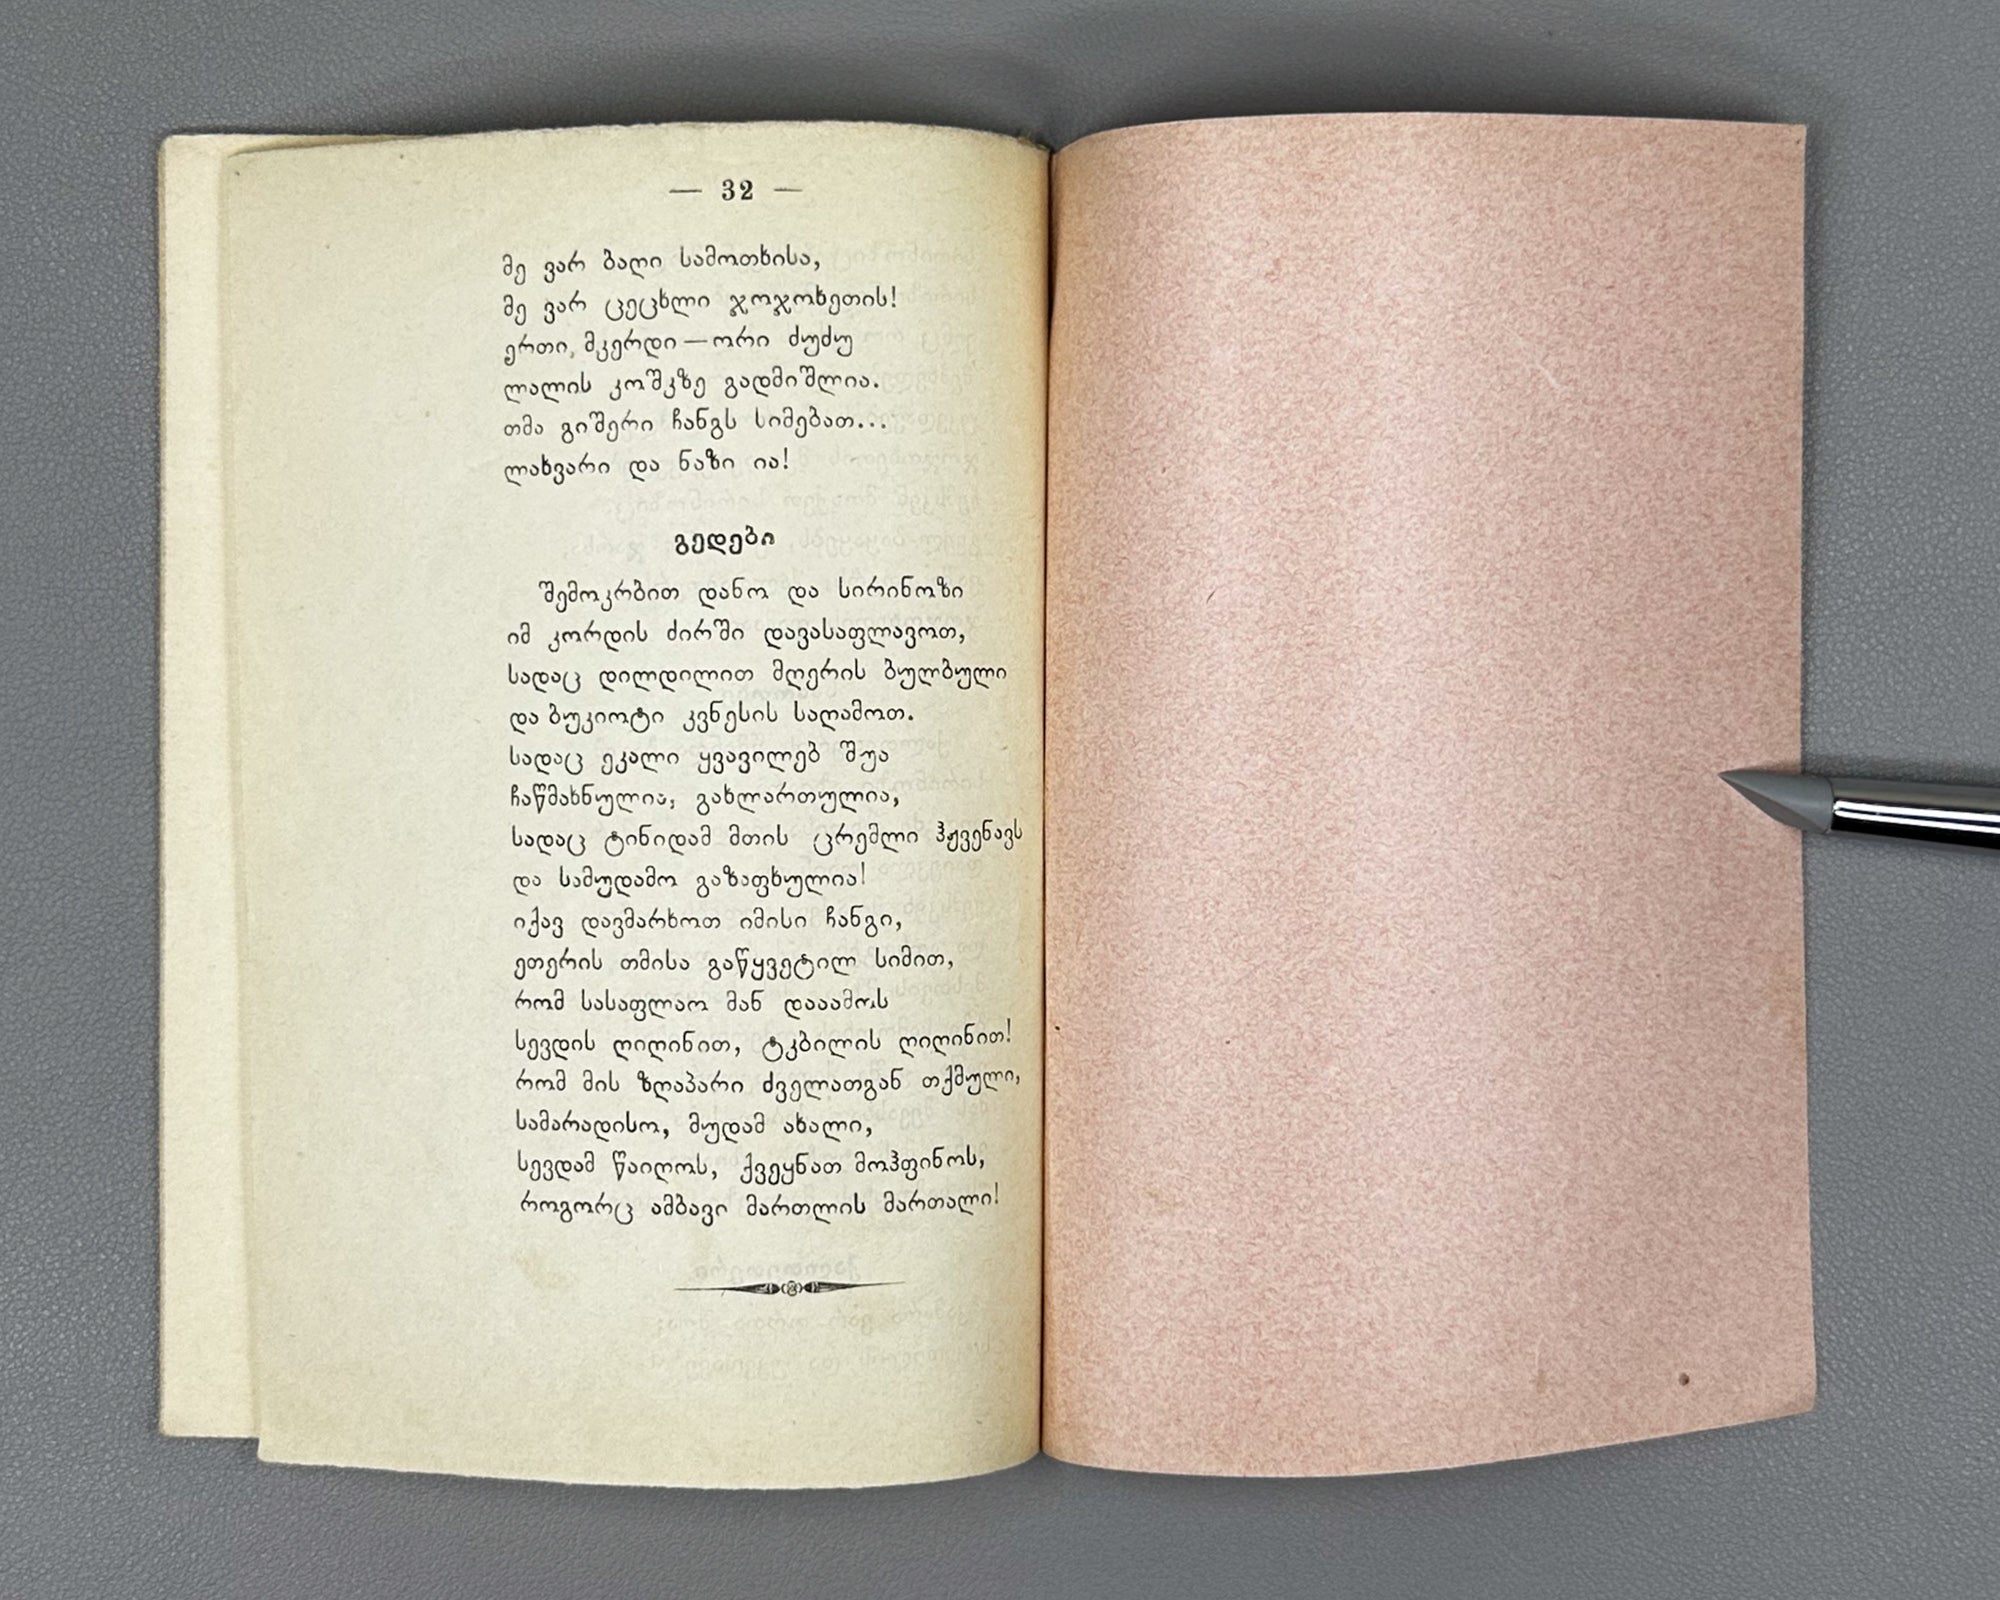 — 32 —
მე ვარ ბაღი სამოთხისა,
მე ვარ ცეცხლი ჯოჯოხეთის!
ერთი მკერდი — ორი ძუძუ
ლალის კოშკზე გადმიშლია.
თმა გიშერი ჩანგს სიმებათ...
ლახვარი და ნაზი ია!
გედები
შემოკრბით დანო და სირინოზი
იმ კორდის ძირში დავასაფლავოთ,
სადაც დილდილით მღერის ბულბული
და ბუკიოტი კვნესის საღამოთ.
სადაც ეკალი ყვავილებ შუა
ჩაწმახნულია, გახლართულია,
სადაც ტინიდამ მთის ცრემლი ჰჟვენავს
და სამუდამო გაზაფხულია!
იქავ დავმარხოთ იმისი ჩანგი,
ეთერის თმისა გაწყვეტილ სიმით,
რომ სასაფლაო მან დააამოს
სევდის ღიღინით, ტკბილის ღიღინით!
რომ მის ზღაპარი ძველათგან თქმული,
სამარადისო, მუდამ ახალი,
სევდამ წაიღოს, ქვეყნათ მოჰფინოს,
როგორც ამბავი მართლის მართალი!